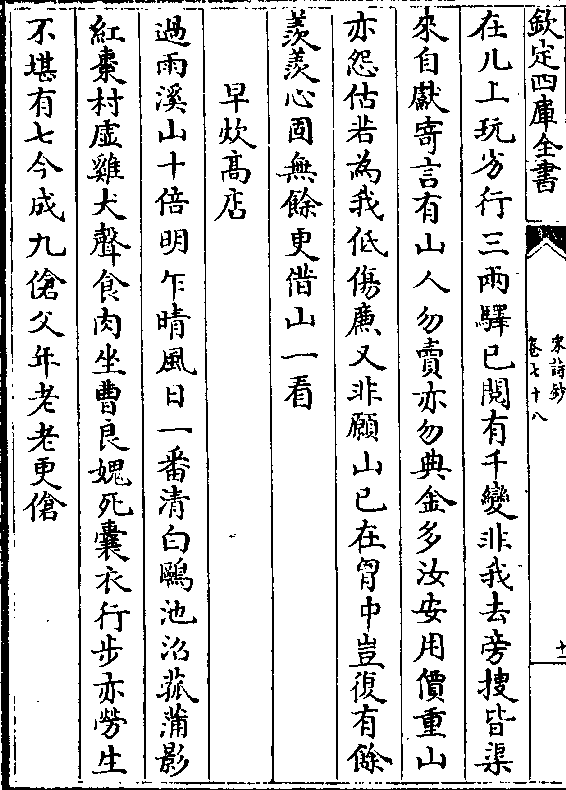 欽定四庫全書
宋詩鈔
卷七十八
十二
在几上玩劣行三兩驛已閱有千變非我去旁搜皆渠
來自獻寄言有山人勿賣亦勿典金多汝安用價重山
亦怨估若為我低傷廉又非願山已在胷中豈復有餘
羨羨心固無餘更借山一看
早炊髙店
過雨溪山十倍明乍晴風日一番清白鷗池沼菰蒲影
紅棗村虛雞犬聲食肉坐曹良媿死囊衣行步亦勞生
不堪有七今成九傖父年老老更傖